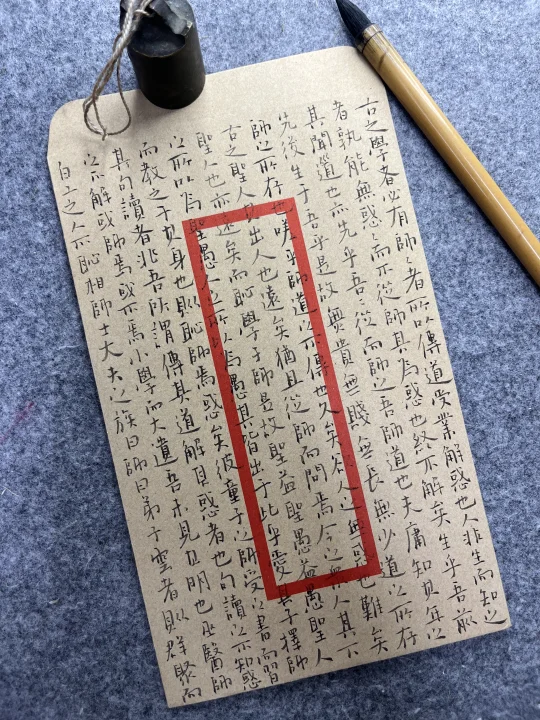 古之學者必有師々者所以傳道受業解惑也人非生而知之
者孰能無惑々而不從師其為惑也終不解矣生乎吾前
其聞道也亦先乎吾從而師之吾師道也夫庸知其年之
先後生于吾乎是故無貴無賤無長無少道之所存
師之所存也嗟乎師道之不傳也久矣欲人之無惑也難矣
古之聖人其出人也遠矣猶且從師而問焉今之眾人其下
聖人也亦遠矣而恥學于師是故聖益聖愚益愚聖人
之所以為聖愚人之所以為愚其皆出于此乎愛其子擇師
而教之于其身也則恥師焉惑矣彼童子之師受之書而習
其句讀者非吾所謂傳其道解其惑者也句讀之不知惑
之不解或師焉或不焉小學而大遺吾未見其明也巫醫師
百工之人不恥相師士大夫之族曰師曰弟子雲者則群聚而